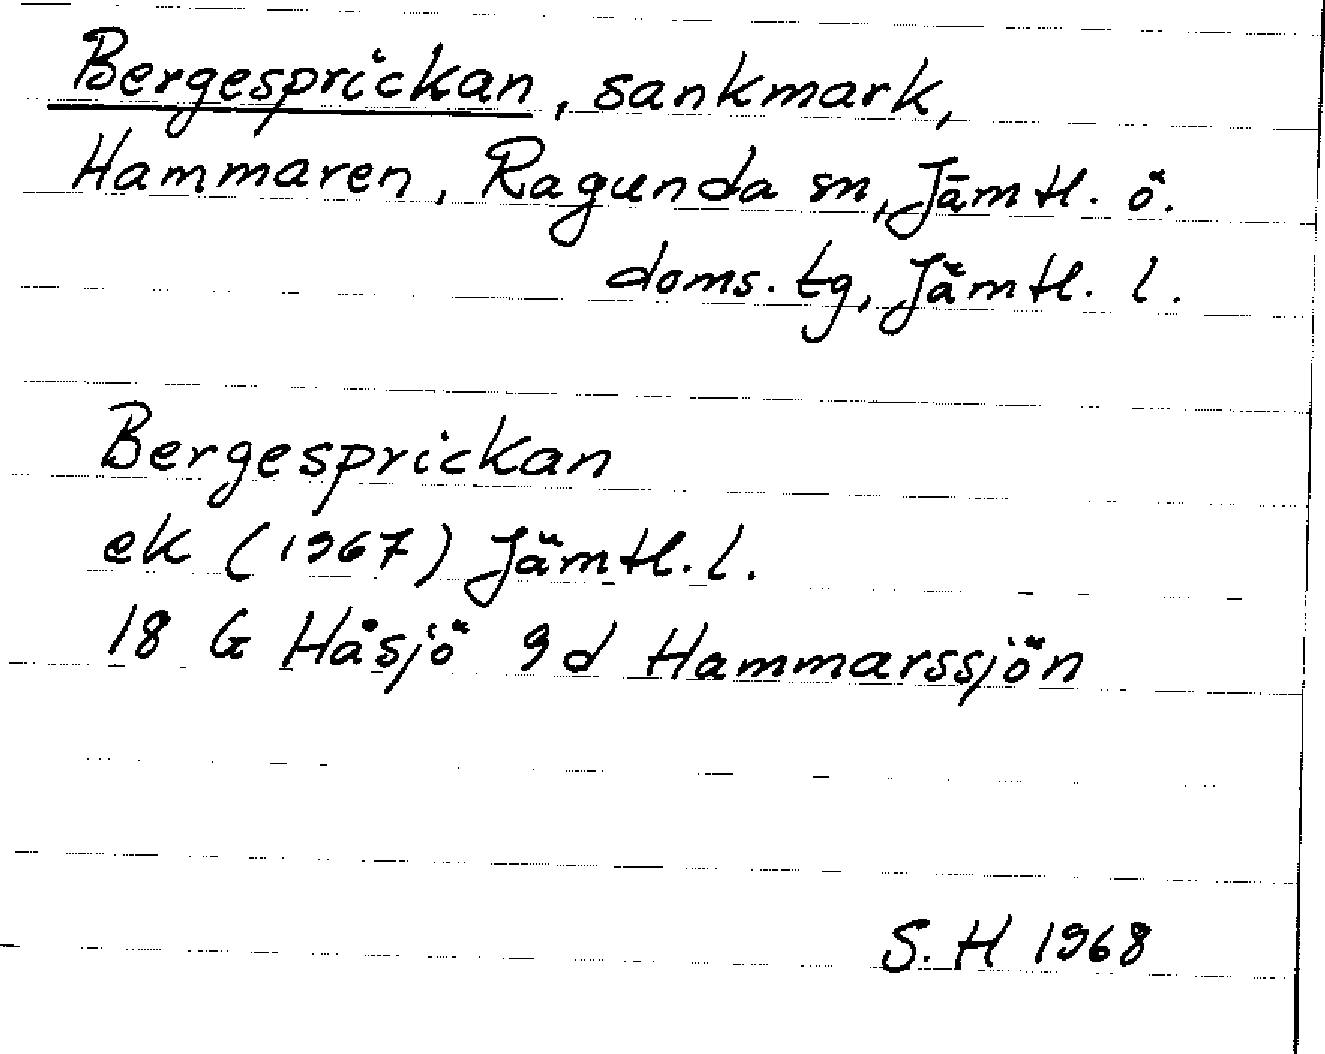 Bergesprickan, sankmark,
Hammaren, Ragunda sn, Jämtl. ö.
doms. tg, Jämtl. l.
Bergesprickan
ek (1967) Jämtl. l.
18 G Håsjö 9 d Hammarssjön
S. H 1968